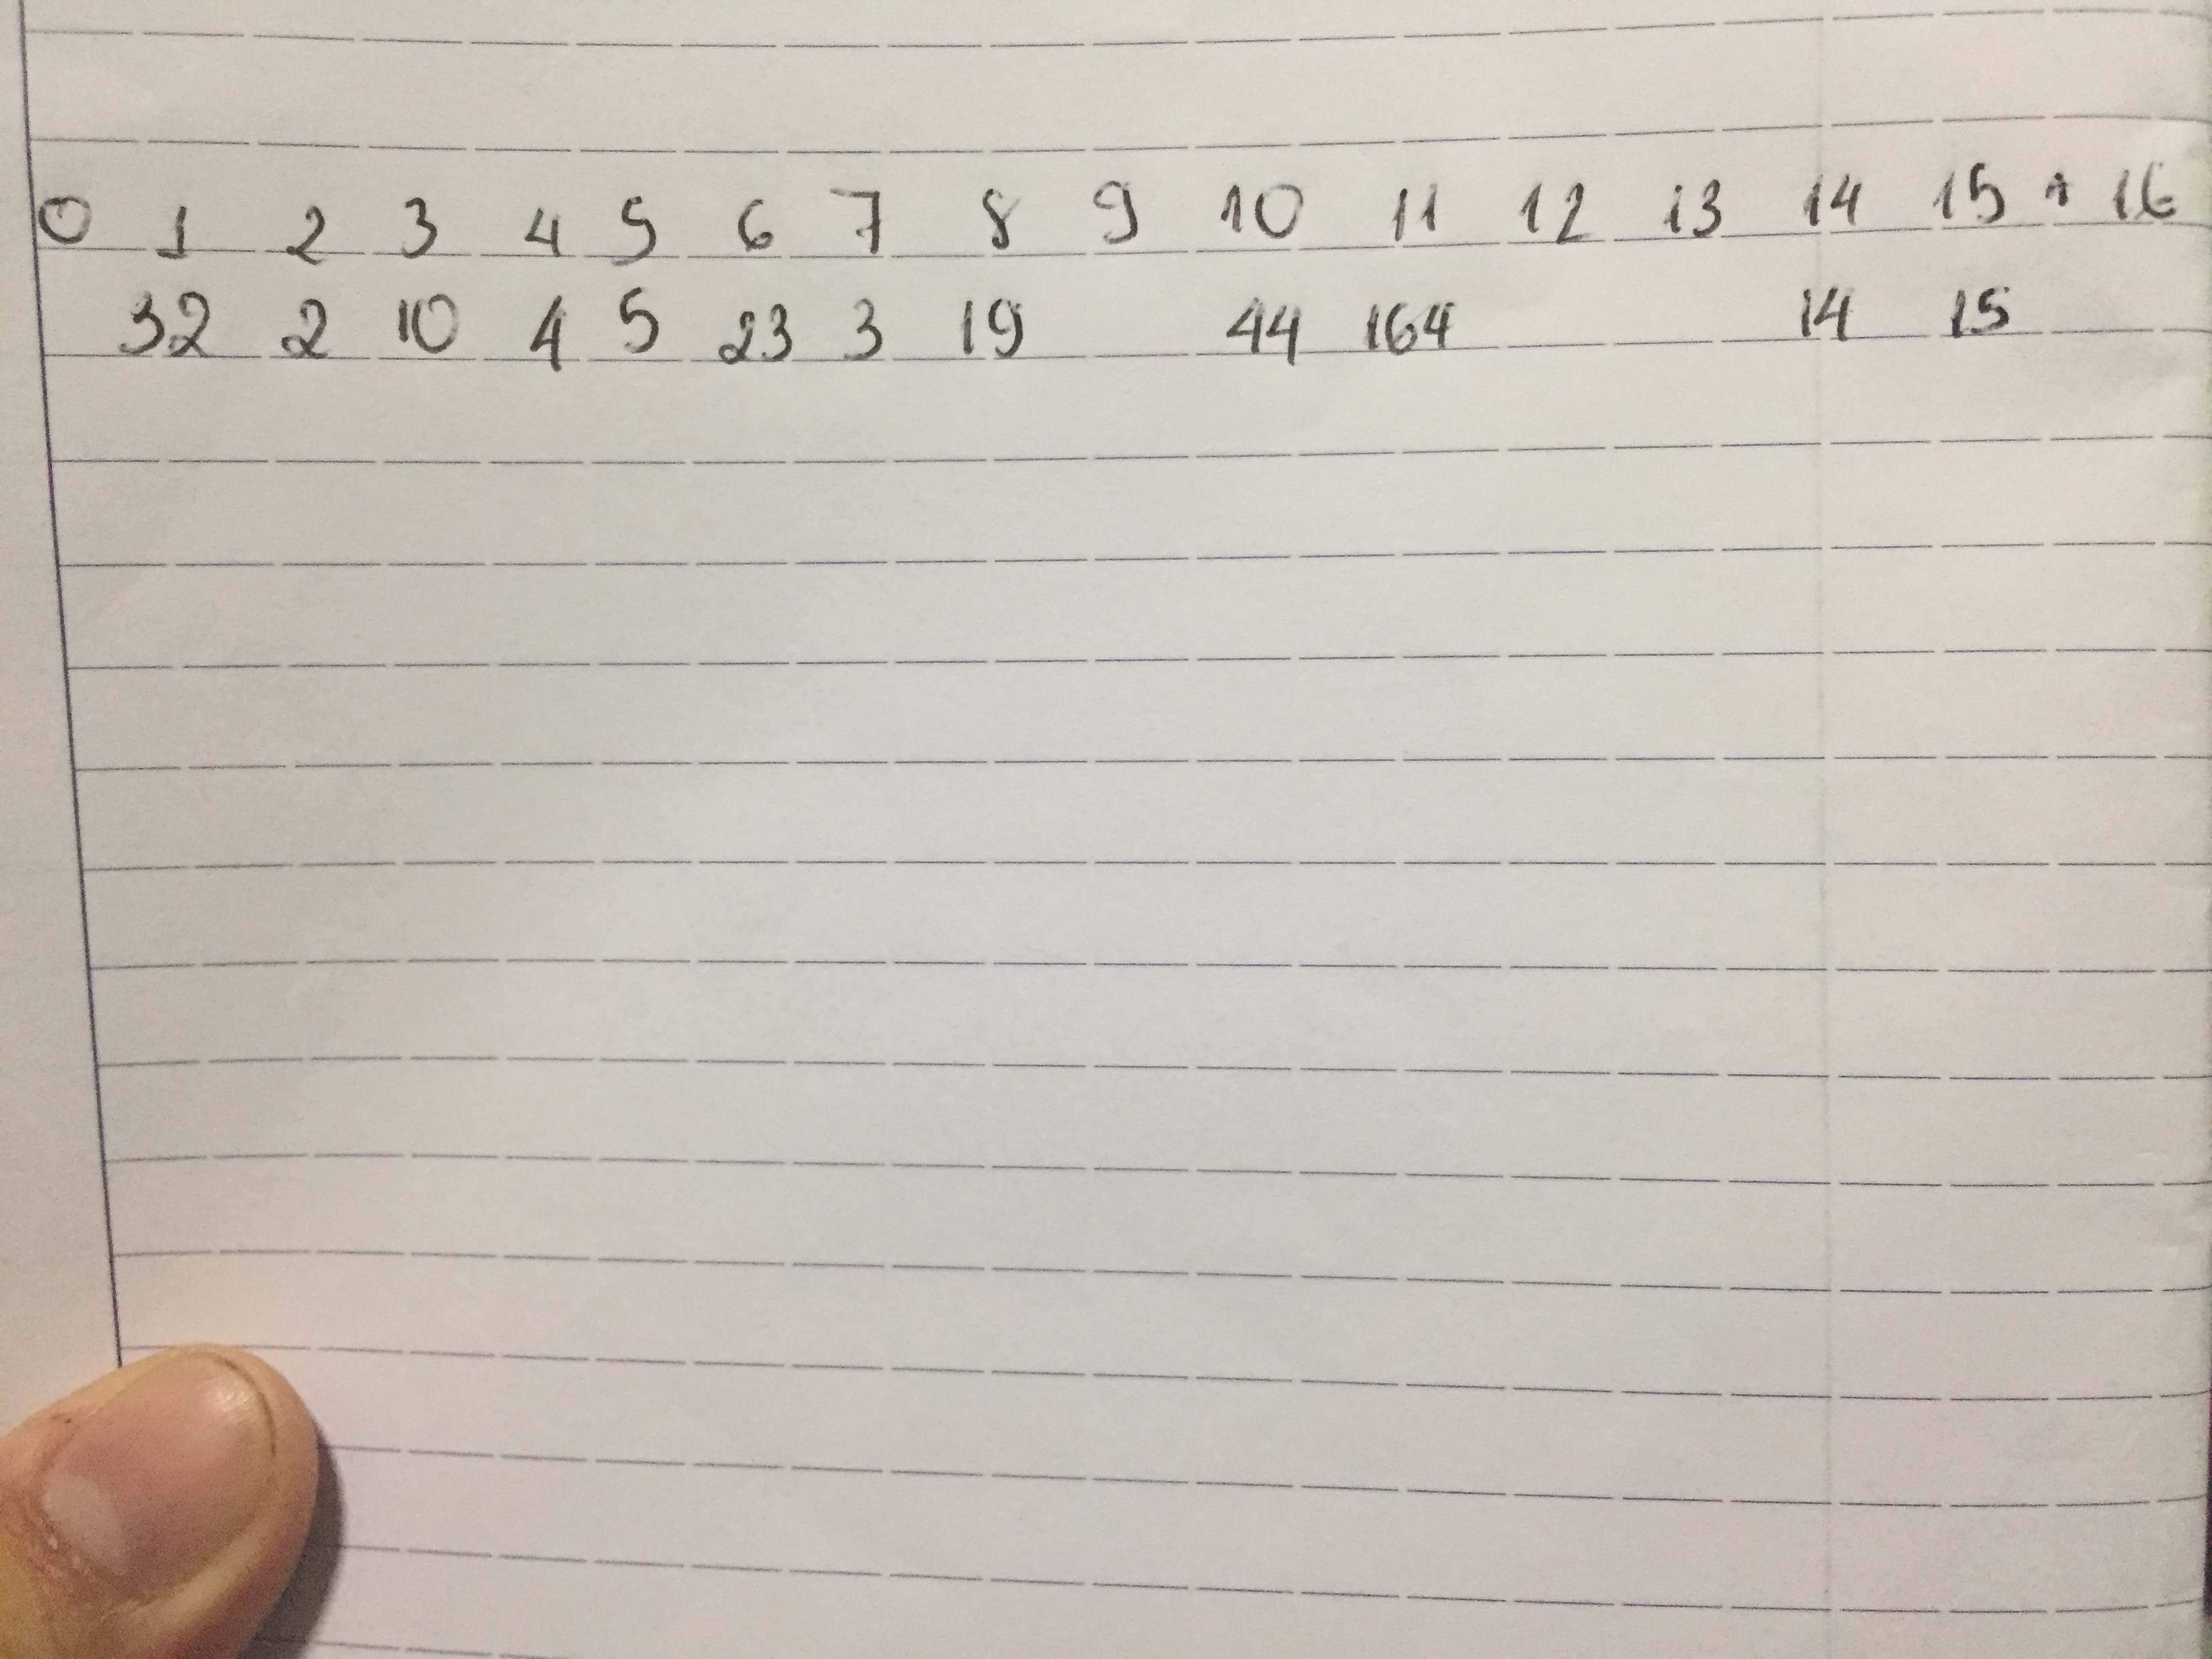 0 1 2 3 4 5 6 7 8 9 10 11 12 13 14 15 16
32 2 10 4 5 23 3 19 44 164 14 15